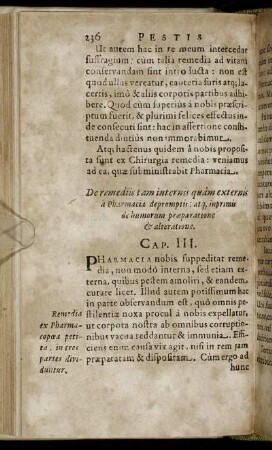 236 PESTIS
Ut autem hac in re meum intercedat
suffragium: cùm talia remedia ad vitam
conservandam sint introducta: non est
quod ullus vereatur, cauteria suris atq; la-
certis, imò & aliis corporis partibus adhi-
bere. Quod cùm superiùs à nobis præscri-
ptum fuerit, & plurimi felices effectus in-
de consecuti sint: hac in assertione consti-
tuenda diutiùs non immorabimur.
Atq; hactenus quidem à nobis proposi-
ta sunt ex Chirurgia remedia: veniamus
ad ea, quæ subministrabit Pharmacia.
De remediis tam internis quàm externis
à Pharmacia depromptis: atq; inprimis
de humorum præparatione
& alteratione.
CAP. III.
PHARMACIA nobis suppeditat reme-
dia, non modò interna, sed etiam ex-
terna, quibus pestem amoliri, & eandem
curare licet. Illud autem potissimùm hac
in parte observandum est, quò omnis pe-
stilentiæ noxa procul à nobis expellatur,
ut corpota nostra ab omnibus corruptio-
nibus vacua reddantur & immunia. Effi-
ciens enim causa vix agit, nisi in rem jam
præparatam & dispositam. Cùm ergo ad
hunc
Remedia
ex Pharma-
copœa peti-
ta, in tres
partes divi-
duntur.